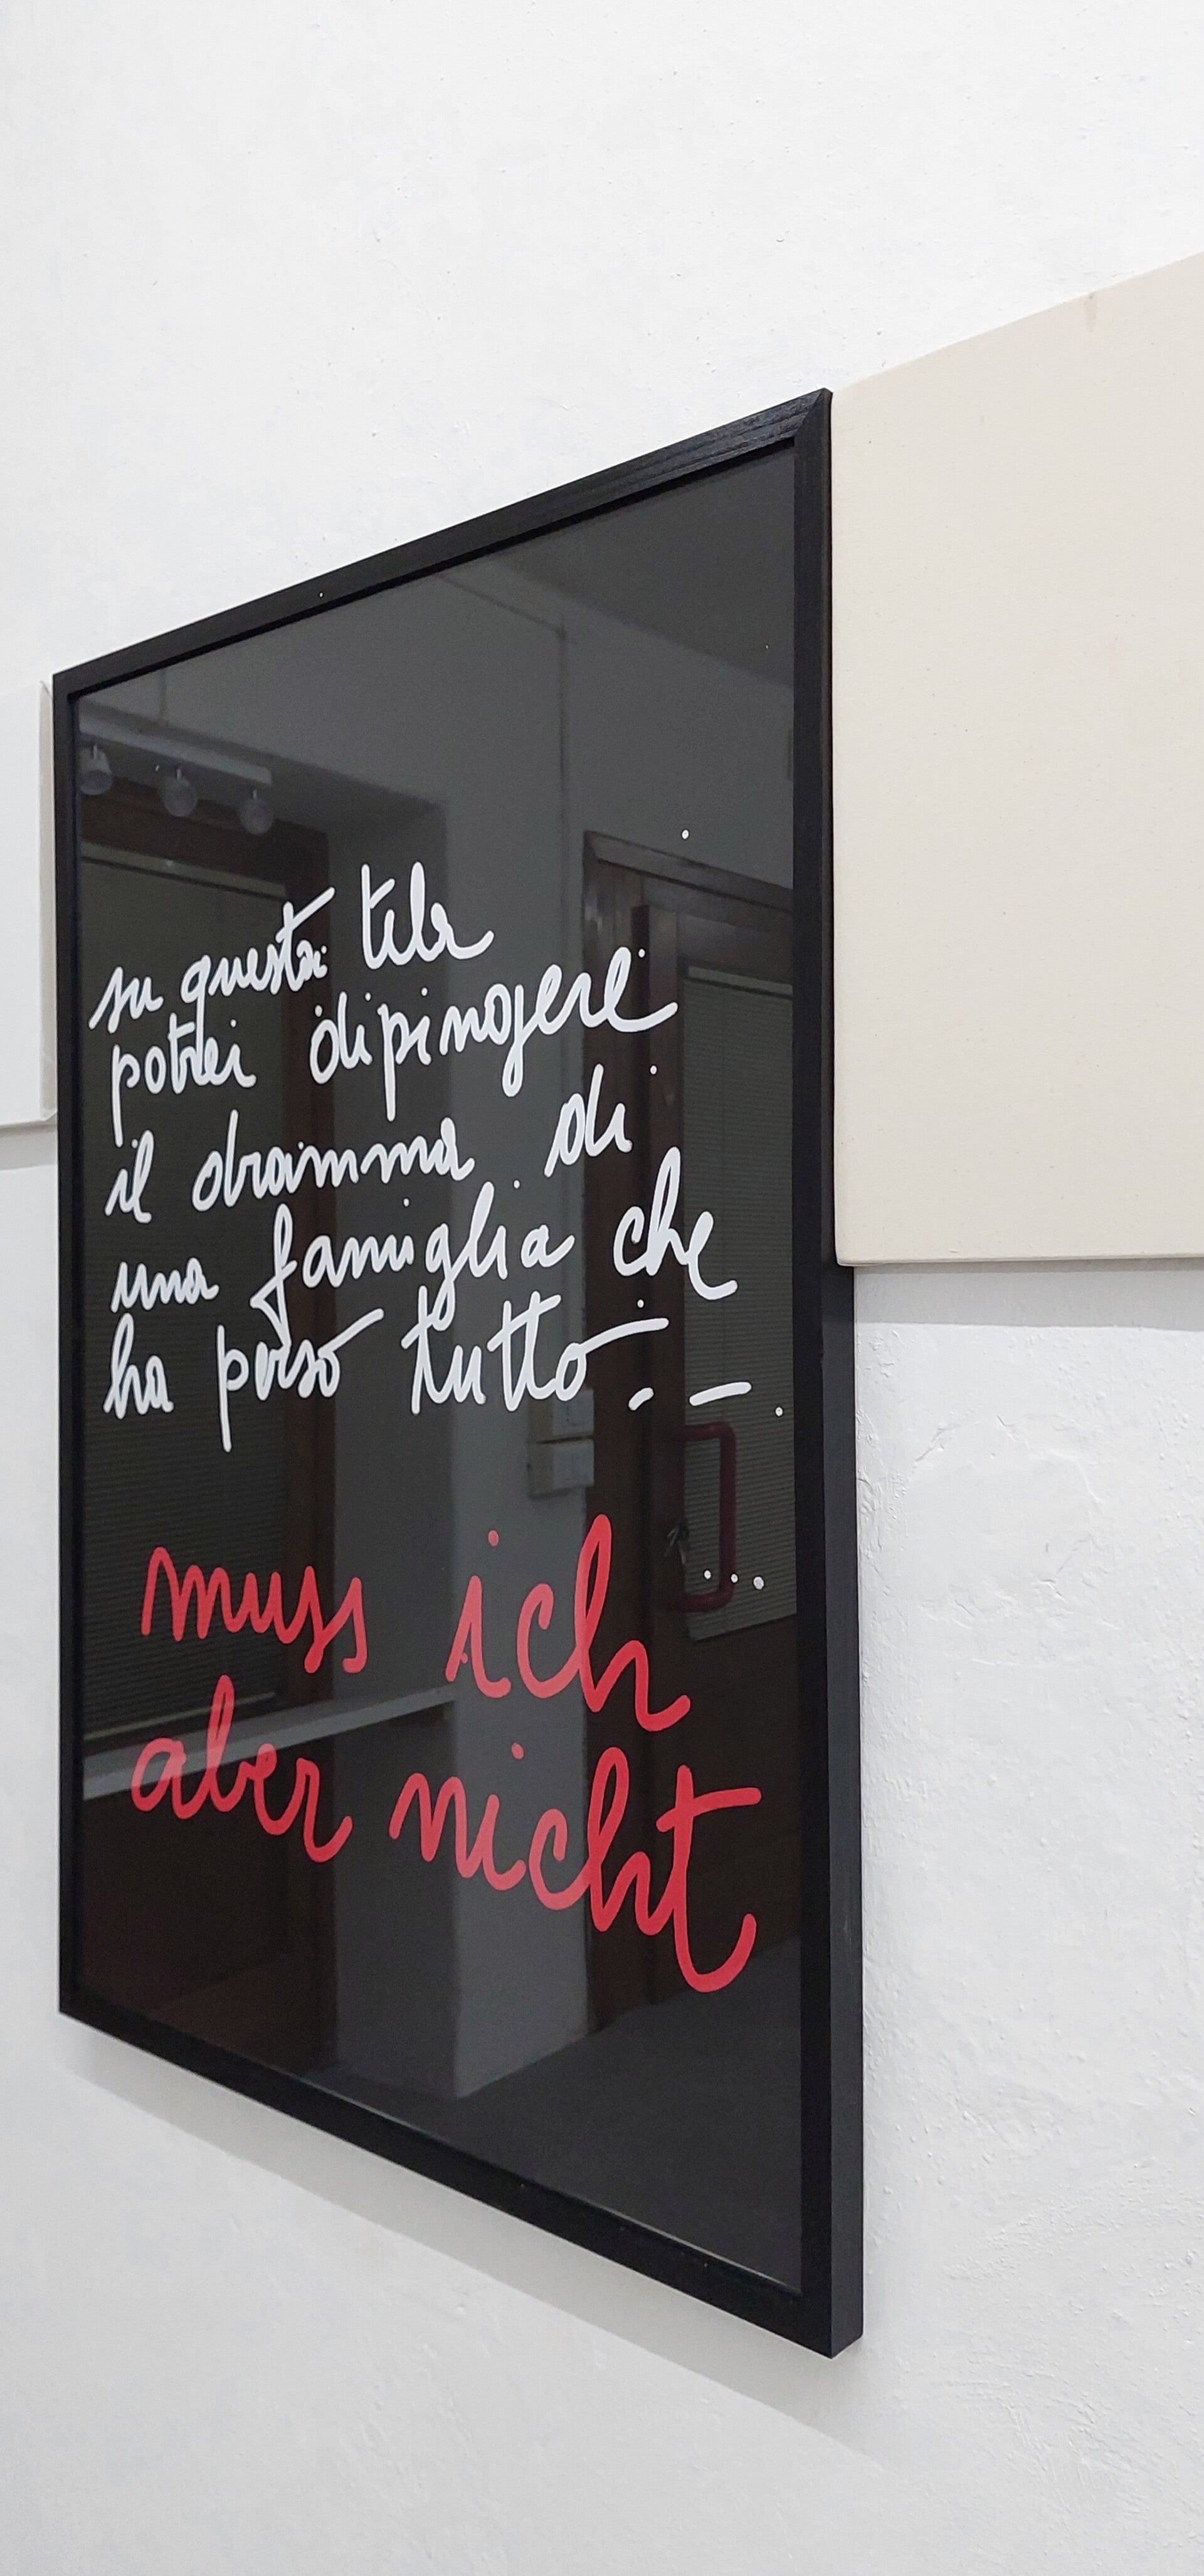 su questa tela
potrei dipingere
il dramma di
una famiglia che
ha perso tutto . _
muss ich
aber nicht